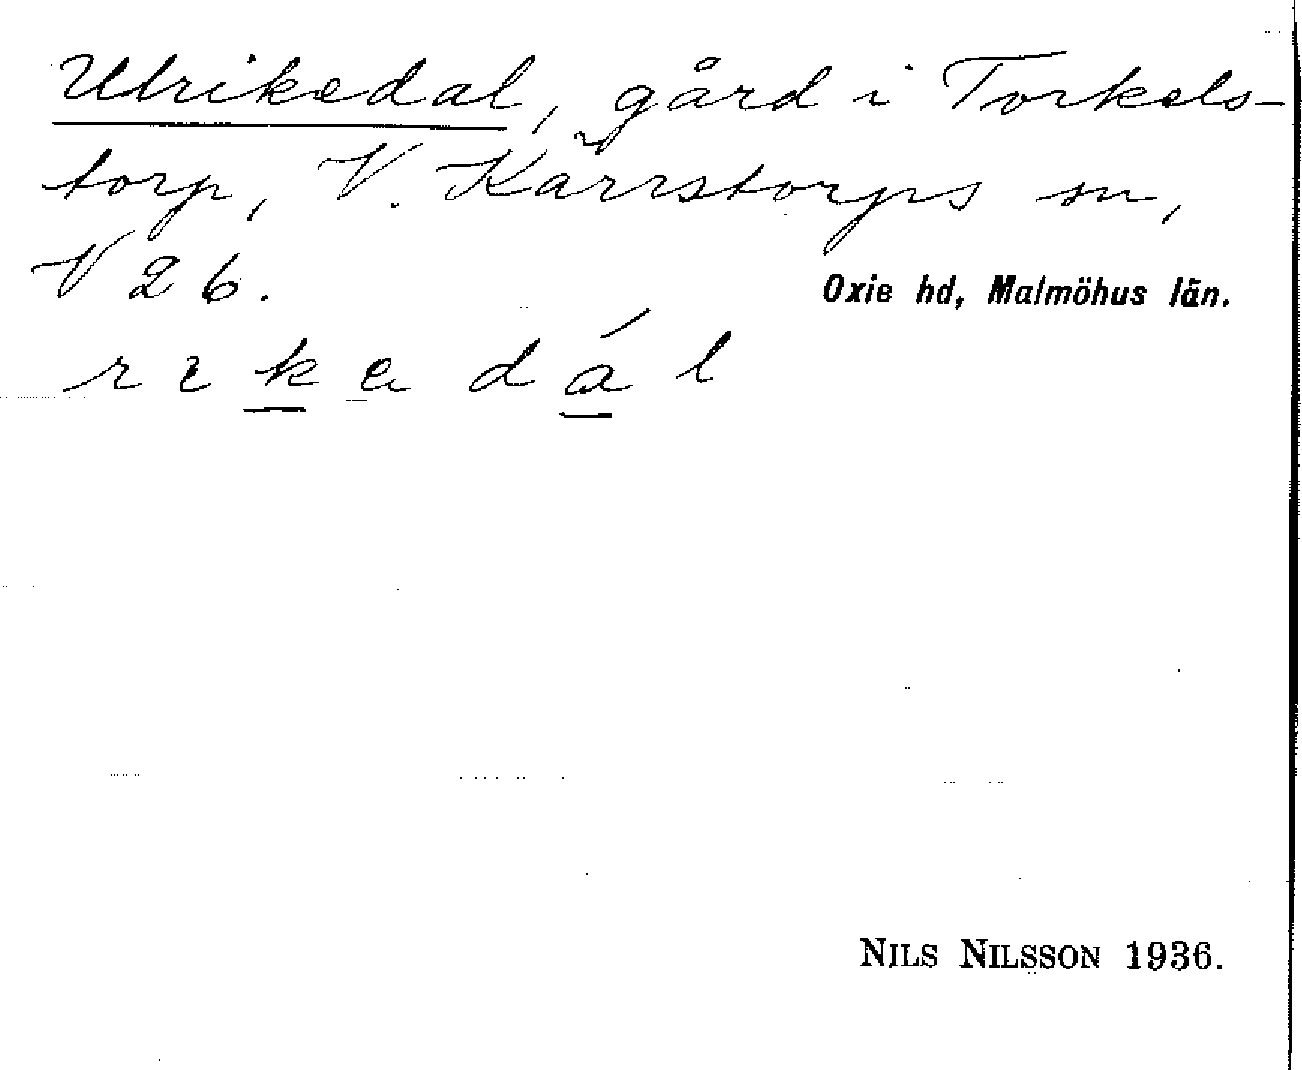 Ulrikedal, gård i Torkels-
torp, V. Kärrstorps sn,
V 26.
Oxie hd, Malmöhus län.
rikedál
NILS NILSSON 1936.